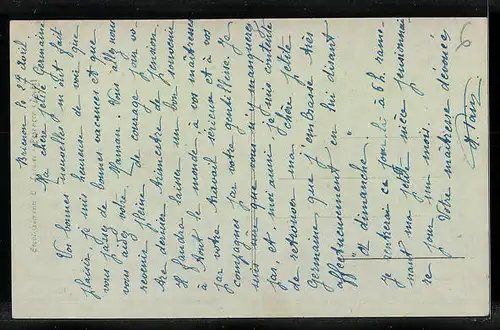 Brienon le 27 Avril
Ma chère petite Germaine
Vos bonnes nouvelles m'ont fait
plaisir, je suis heureuse de voir que
vous passez de bonnes vacances et que
vous aidez votre Maman. Vous allez nous
revenir pleine de courage pour vo-
tre dernier trimestre de pension.
Il faudra laisser un bon souvenir
à tout le monde à vos maîtresses
par votre travail sérieux et à vos
compagnes par votre gentillesse. Je
suis sûre que vous n'y manquerez
pas et moi aussi je suis contente
de retrouver ma chère petite
germaine que j'embrasse très
affectueusement en lui disant
"à dimanche"
Je rentrerai ce jour là à 6h. rame-
nant ma petite nièce pensionnai-
re pour un mois.
Votre maîtresse dévouée